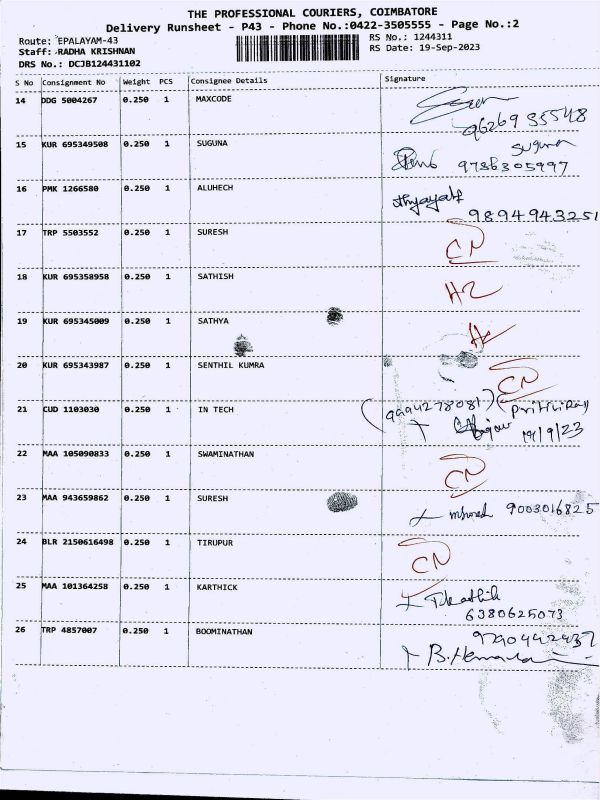 THE PROFESSIONAL COURIERS, COIMBATORE
Delivery Runsheet - P43 - Phone No.:0422-3505555 - Page No.:2
Route: EPALAYAM-43
RS No.: 1244311
Staff: RADHA KRISHNAN
RS Date: 19-Sep-2023
DRS No.: DCJB124431102
S No Consignment No Weight PCS Consignee Details Signature
14 DDG 5004267 0.250 1 MAXCODE
9626935548
15 KUR 695349508 0.250 1 SUGUNA Suguna
9786305997
16 PMK 1266580 0.250 1 ALUHECH
9894943251
17 TRP 5503552 0.250 1 SURESH CN
18 KUR 695358958 0.250 1 SATHISH
19 KUR 695345009 0.250 1 SATHYA
20 KUR 695343987 0.250 1 SENTHIL KUMRA CN
21 CUD 1103030 0.250 1 IN TECH (9994278081)
19/9/23
22 MAA 105090833 0.250 1 SWAMINATHAN CN
23 MAA 943659862 0.250 1 SURESH 9003016825
24 BLR 2150616498 0.250 1 TIRUPUR CN
25 MAA 101364258 0.250 1 KARTHICK
6380625073
26 TRP 4857007 0.250 1 BOOMINATHAN 9790442437